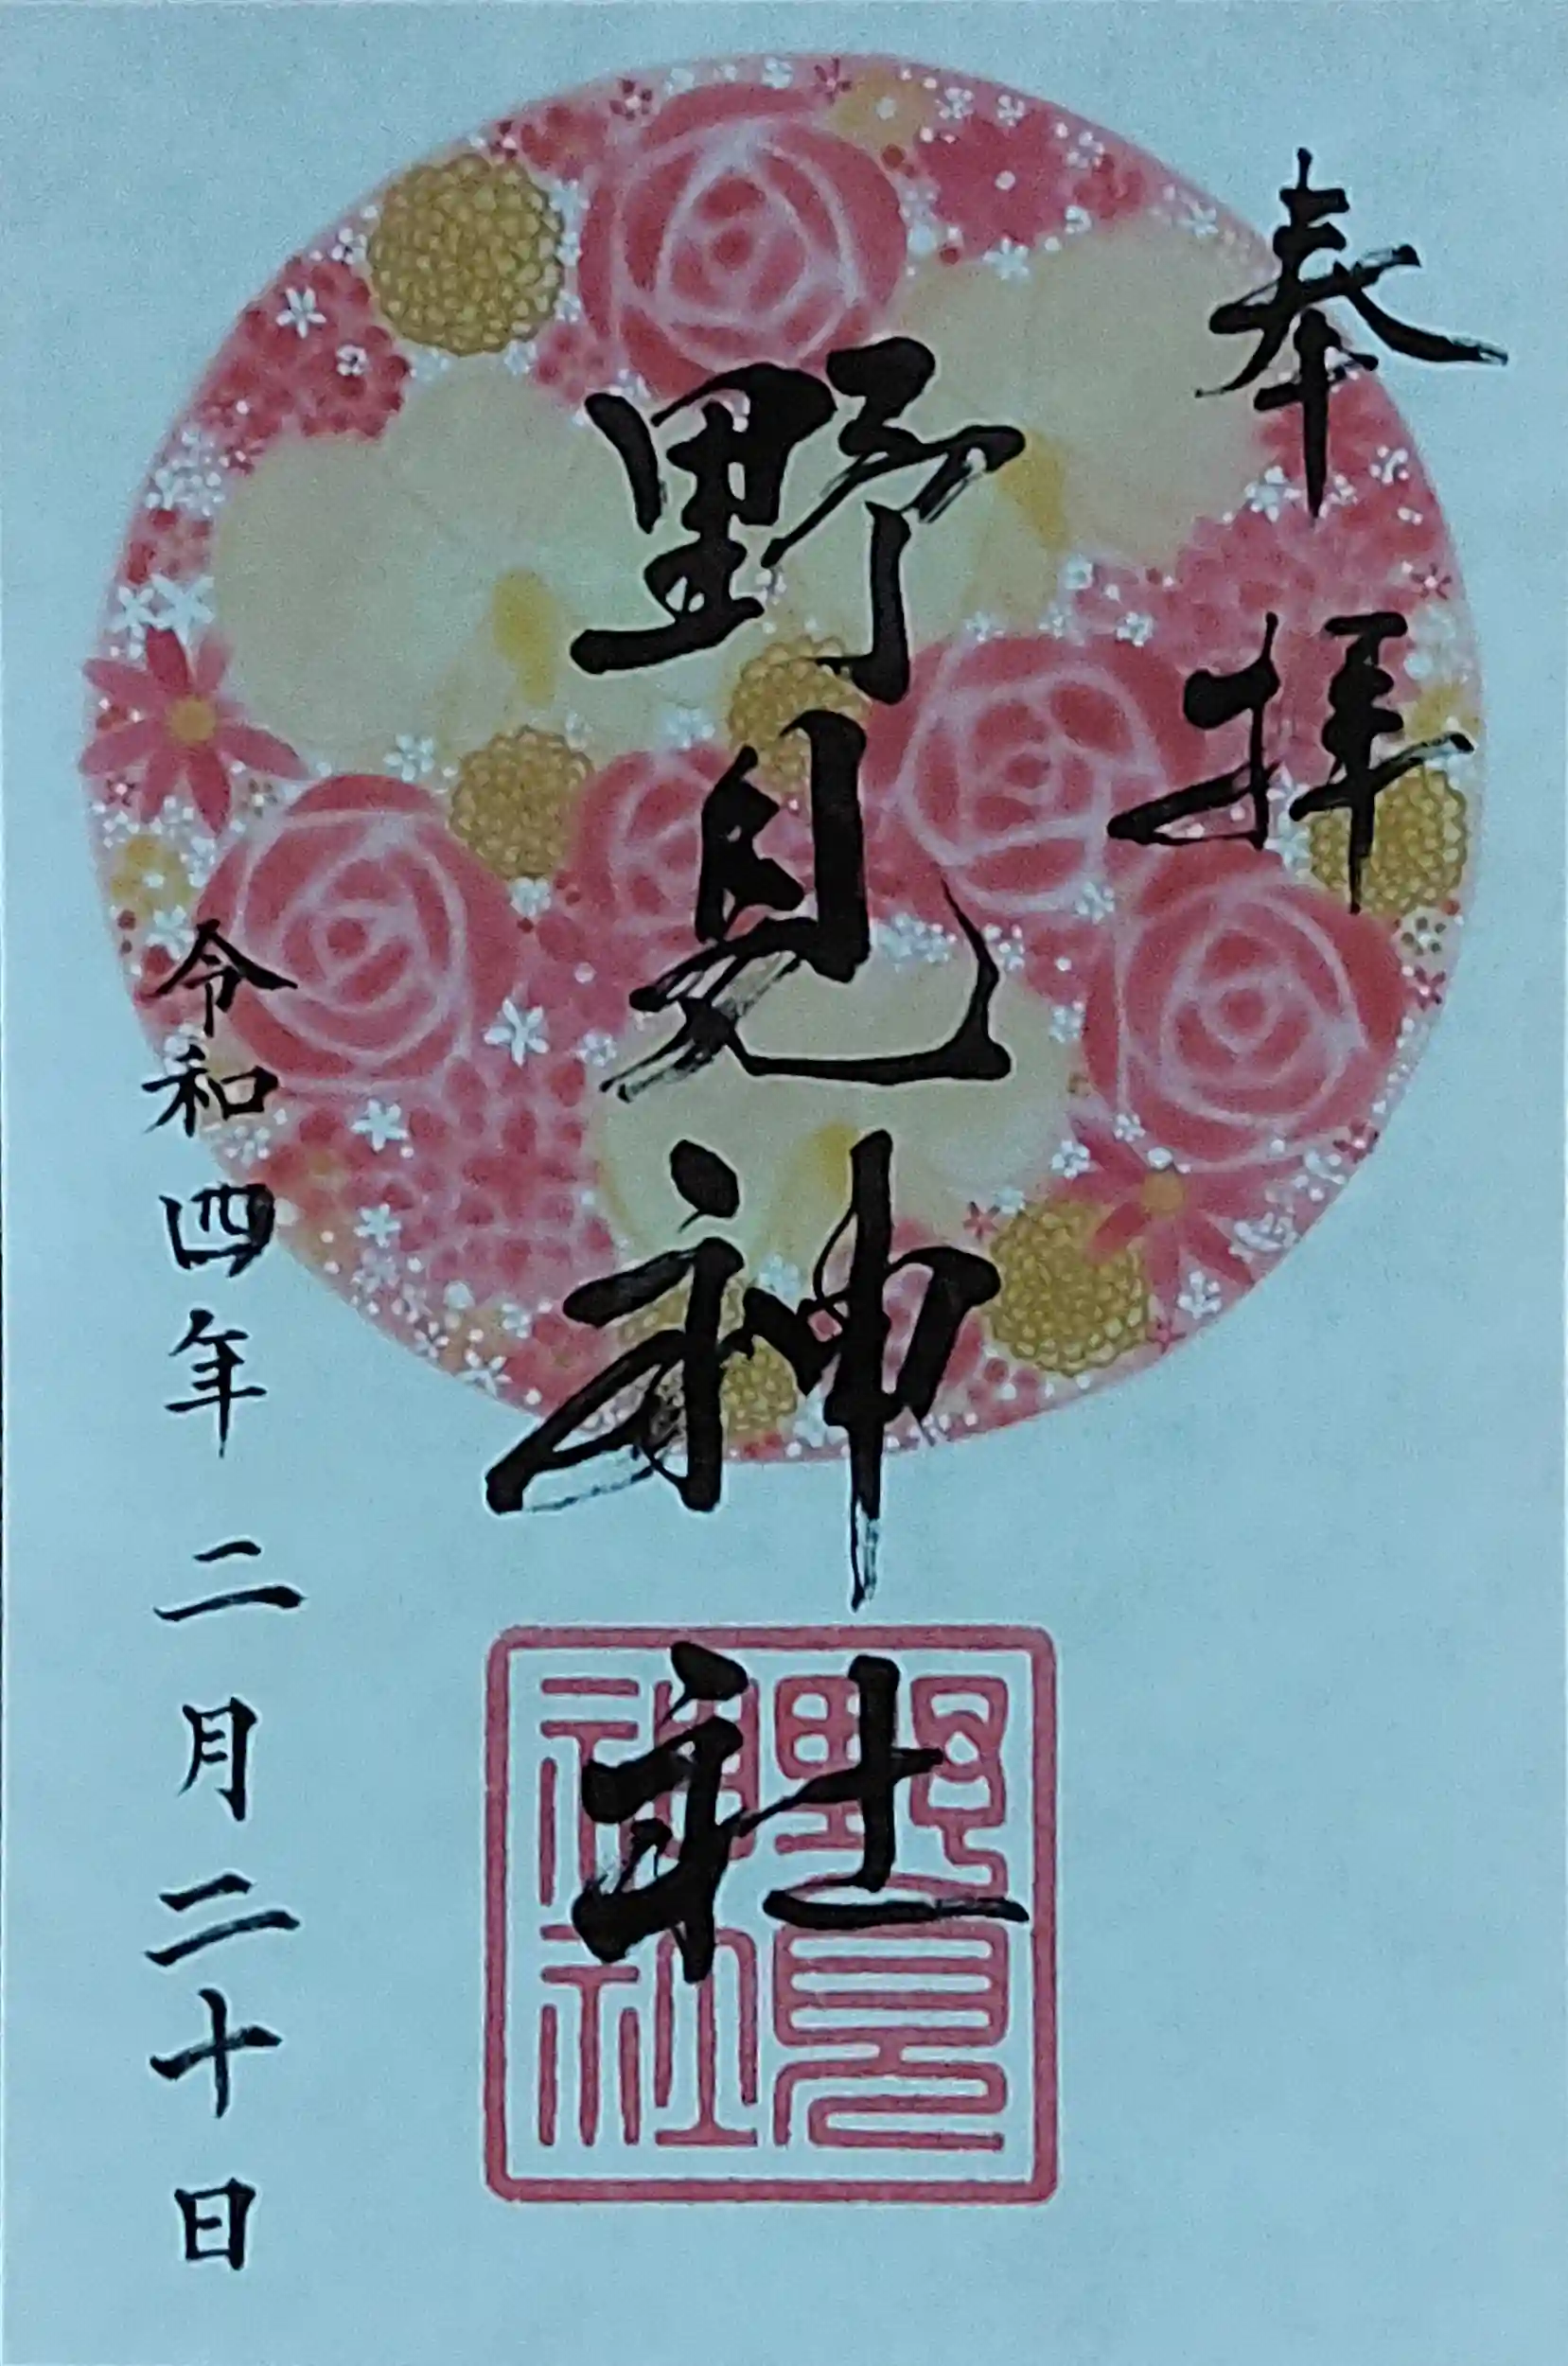 奉拝
野見神社
野見
神社
令和四年二月二十日